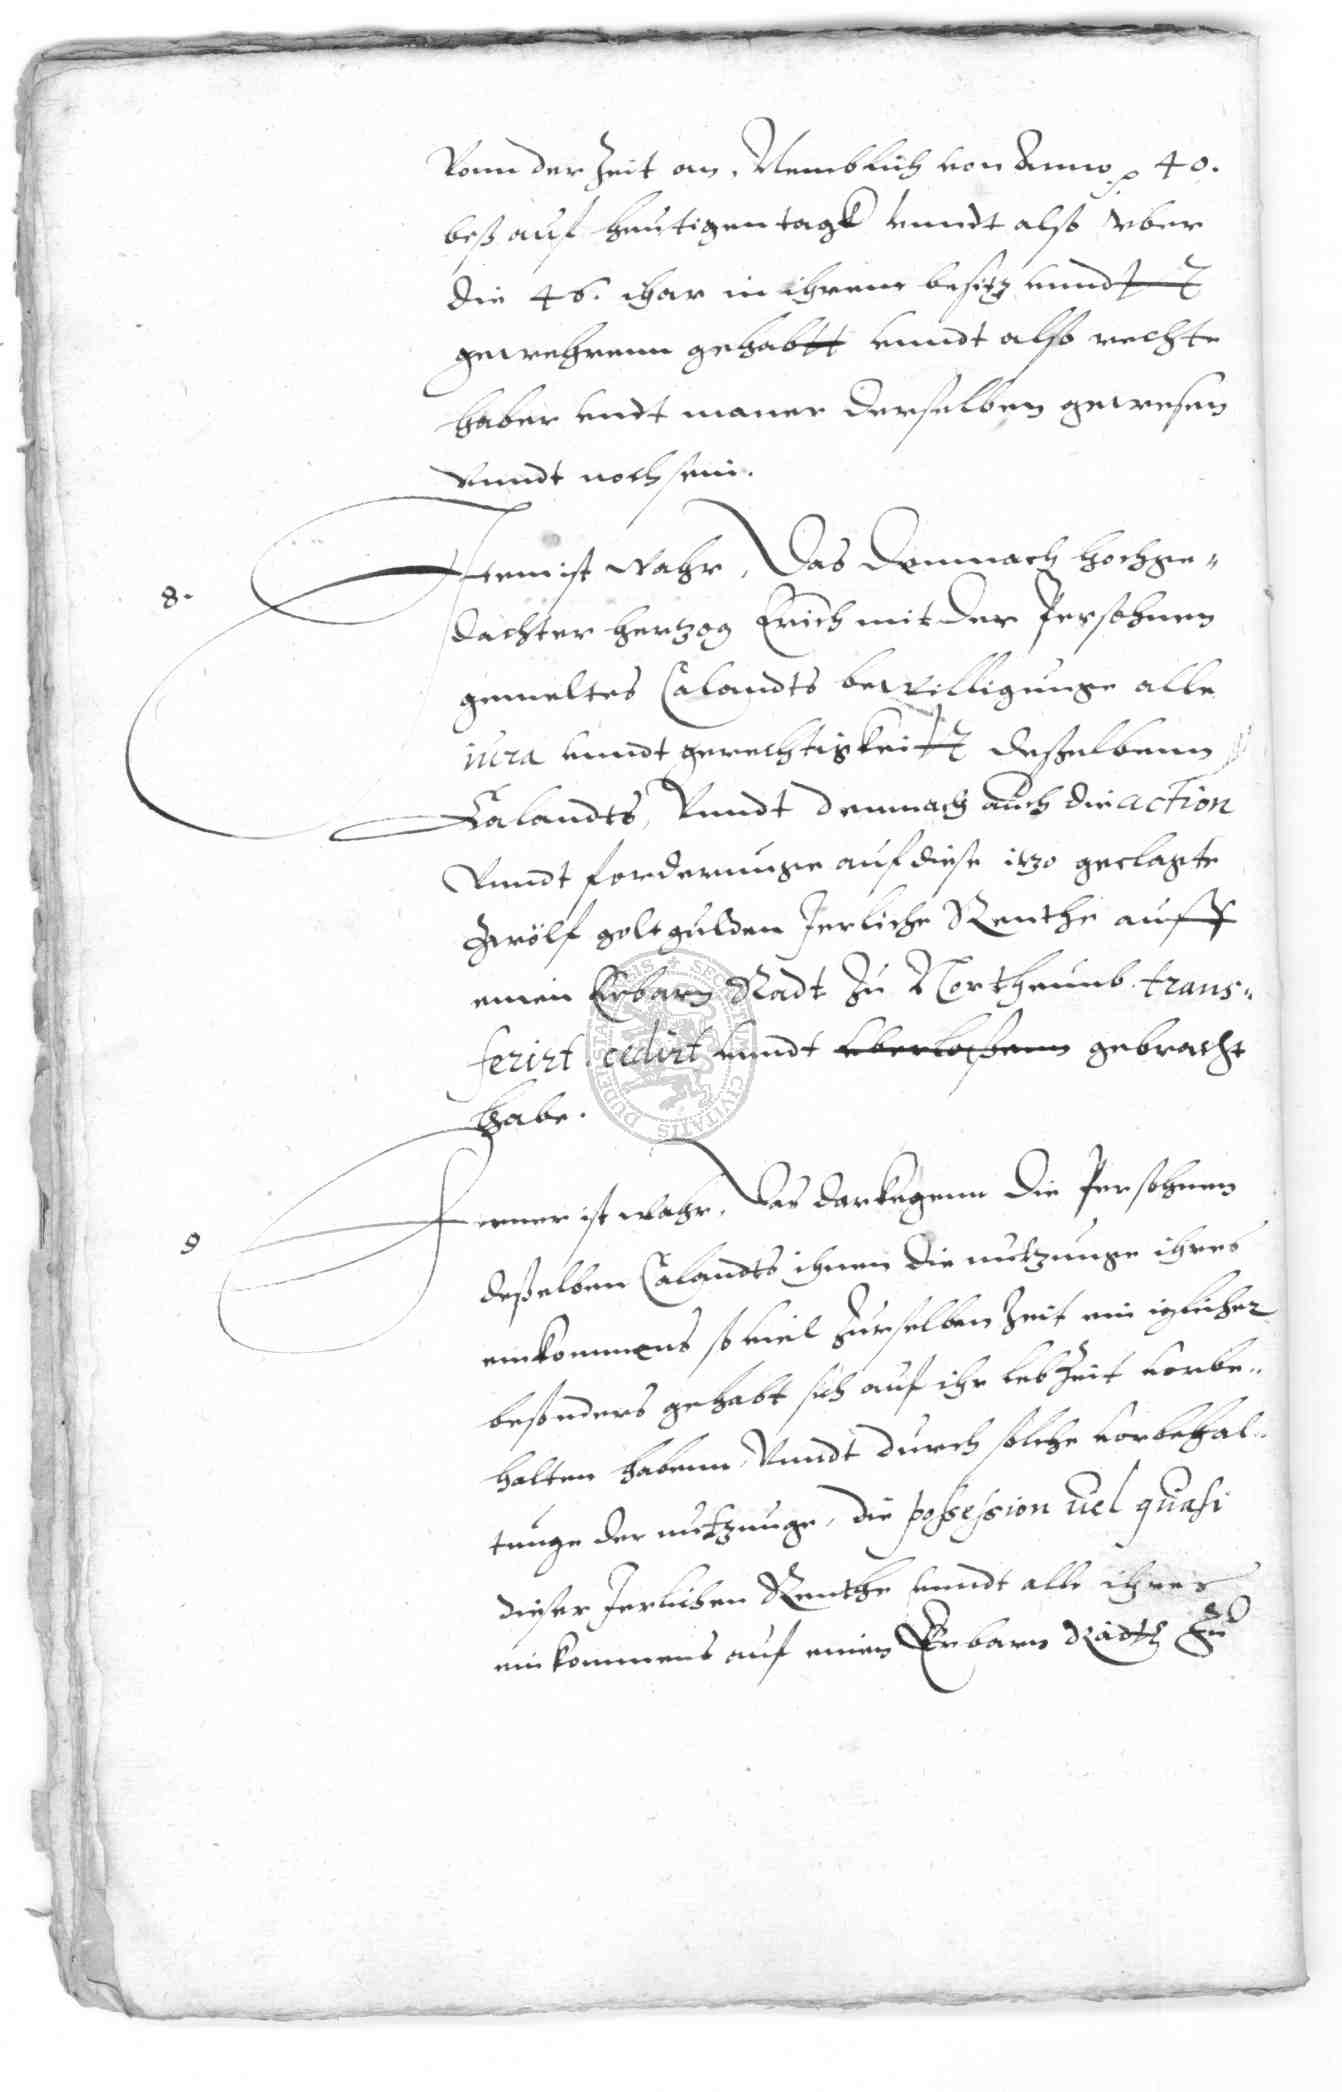 Vonn der Zeit an, Nemblich von Anno p 40.
beß auf heutigen tagk vnndt also vber
die 46. ihar in ihrem besitz vnndt
gewehrenn gehabtt vnndt also rechte
haber vndt maner derselben gewesen
vnndt noch sein.
8. Item ist wahr, Das demnach hochge„
dachter hertzog Erich mit der Persohnen
gemeltes Calandts bewilligunge alle
iura vnndt gerechtigkeitt deßelbenn
Calandts, Vnndt demnach auch die action
Vnndt forderunge auf diese itzo geclagte
Zwölf goltgulden Jerliche Renthe auff
einen Erbarn Radt zu Northeimb trans„
ferirt. cedirt vnndt vberlaßenn gebracht
habe.
9 Ferner ist wahr, Das darkegenn die Persohnen
deßelben Calandts ihnen die nutzunge ihres
einkommens so viel zur selben Zeit ein iglicher
besonders gehabt sich auf ihr lebZeit vorbe„
halten habenn, Vnndt durch solche vorbehal„
tunge der nutzunge, die possession uel quasi
dieser Jerlichen Renthe vnndt alle ihres
einkommens auf einen Erbarn Radth zu
SECRETUM CIVITATIS DUDERSTADENSIS